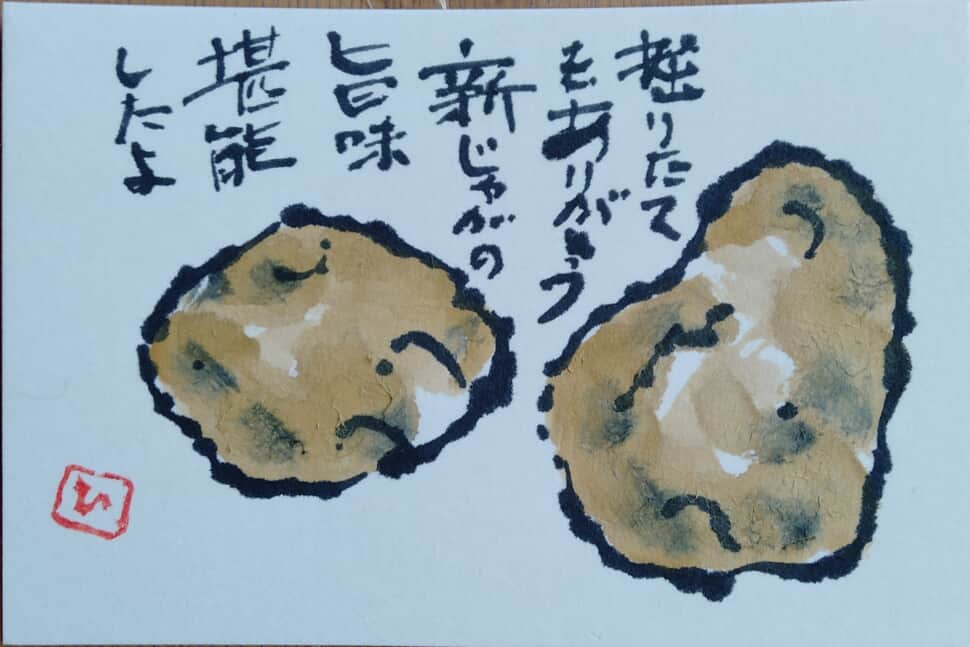 掘りたて
をありがとう
新じゃがの
旨味
堪能
したよ
ひ